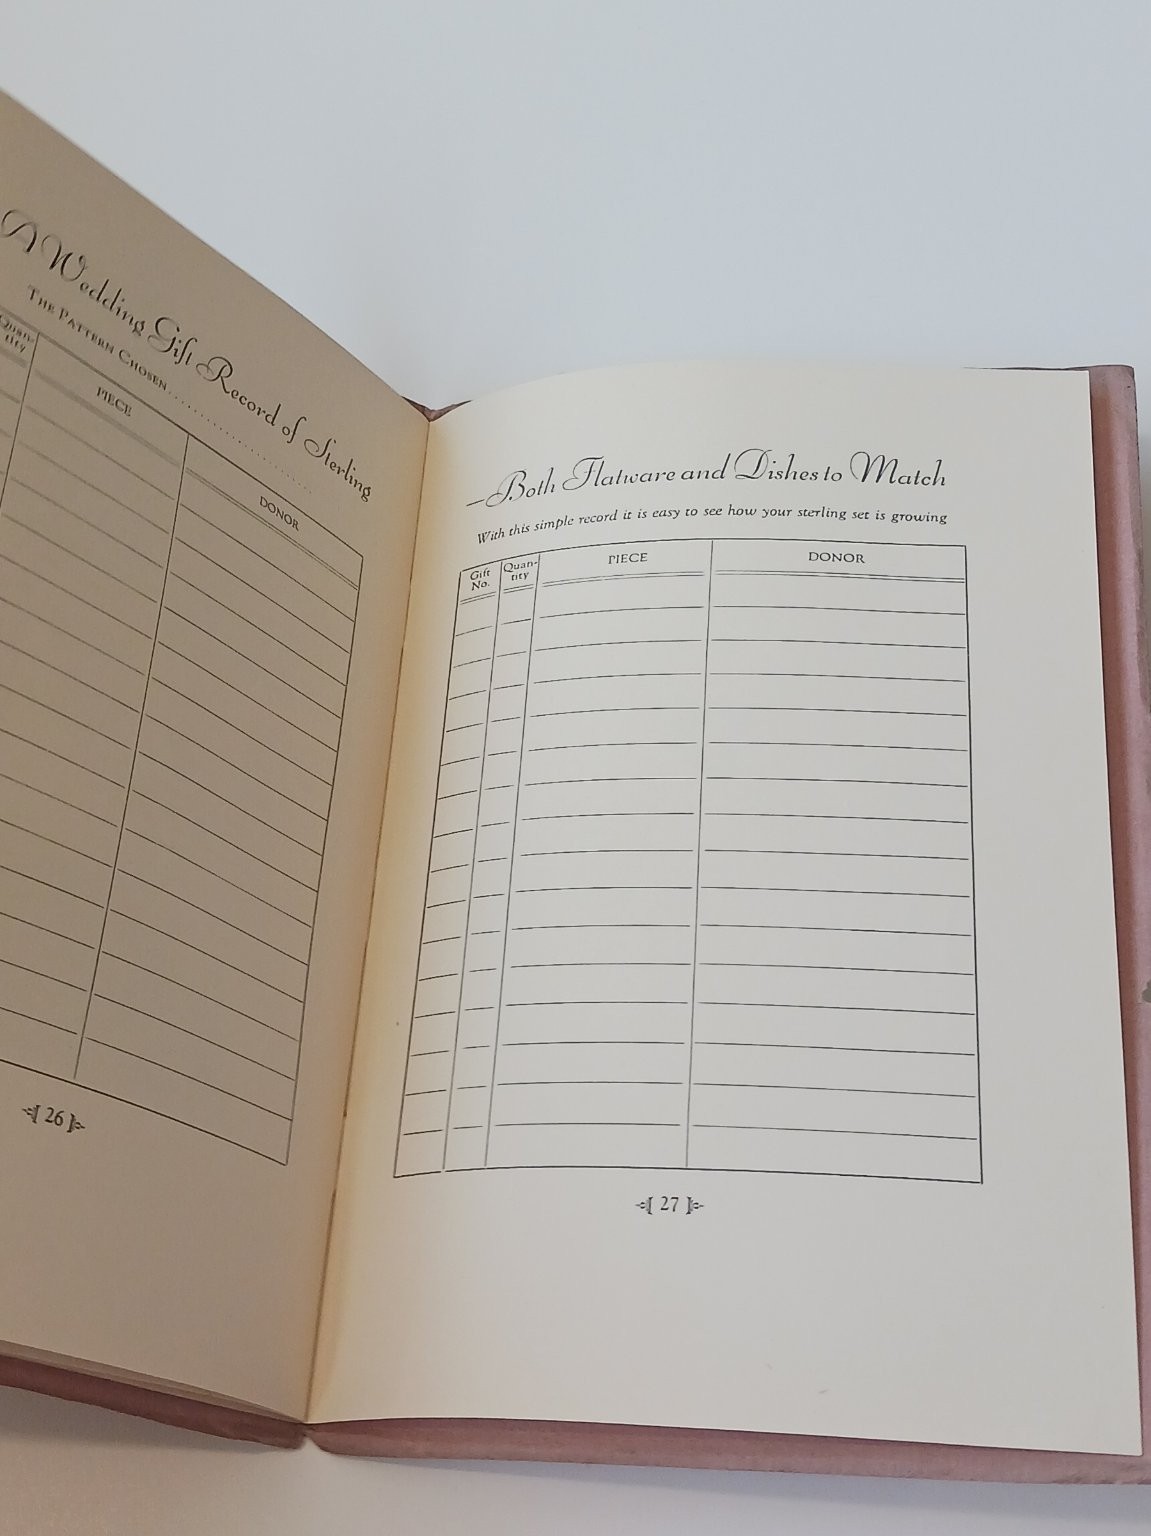 A Wedding Gift Record of Sterling
THE PATTERN CHOSEN
Quan-
tity
PIECE
DONOR
26
—Both Flatware and Dishes to Match
With this simple record it is easy to see how your sterling set is growing
Gift
No.
Quan-
tity
PIECE
DONOR
27